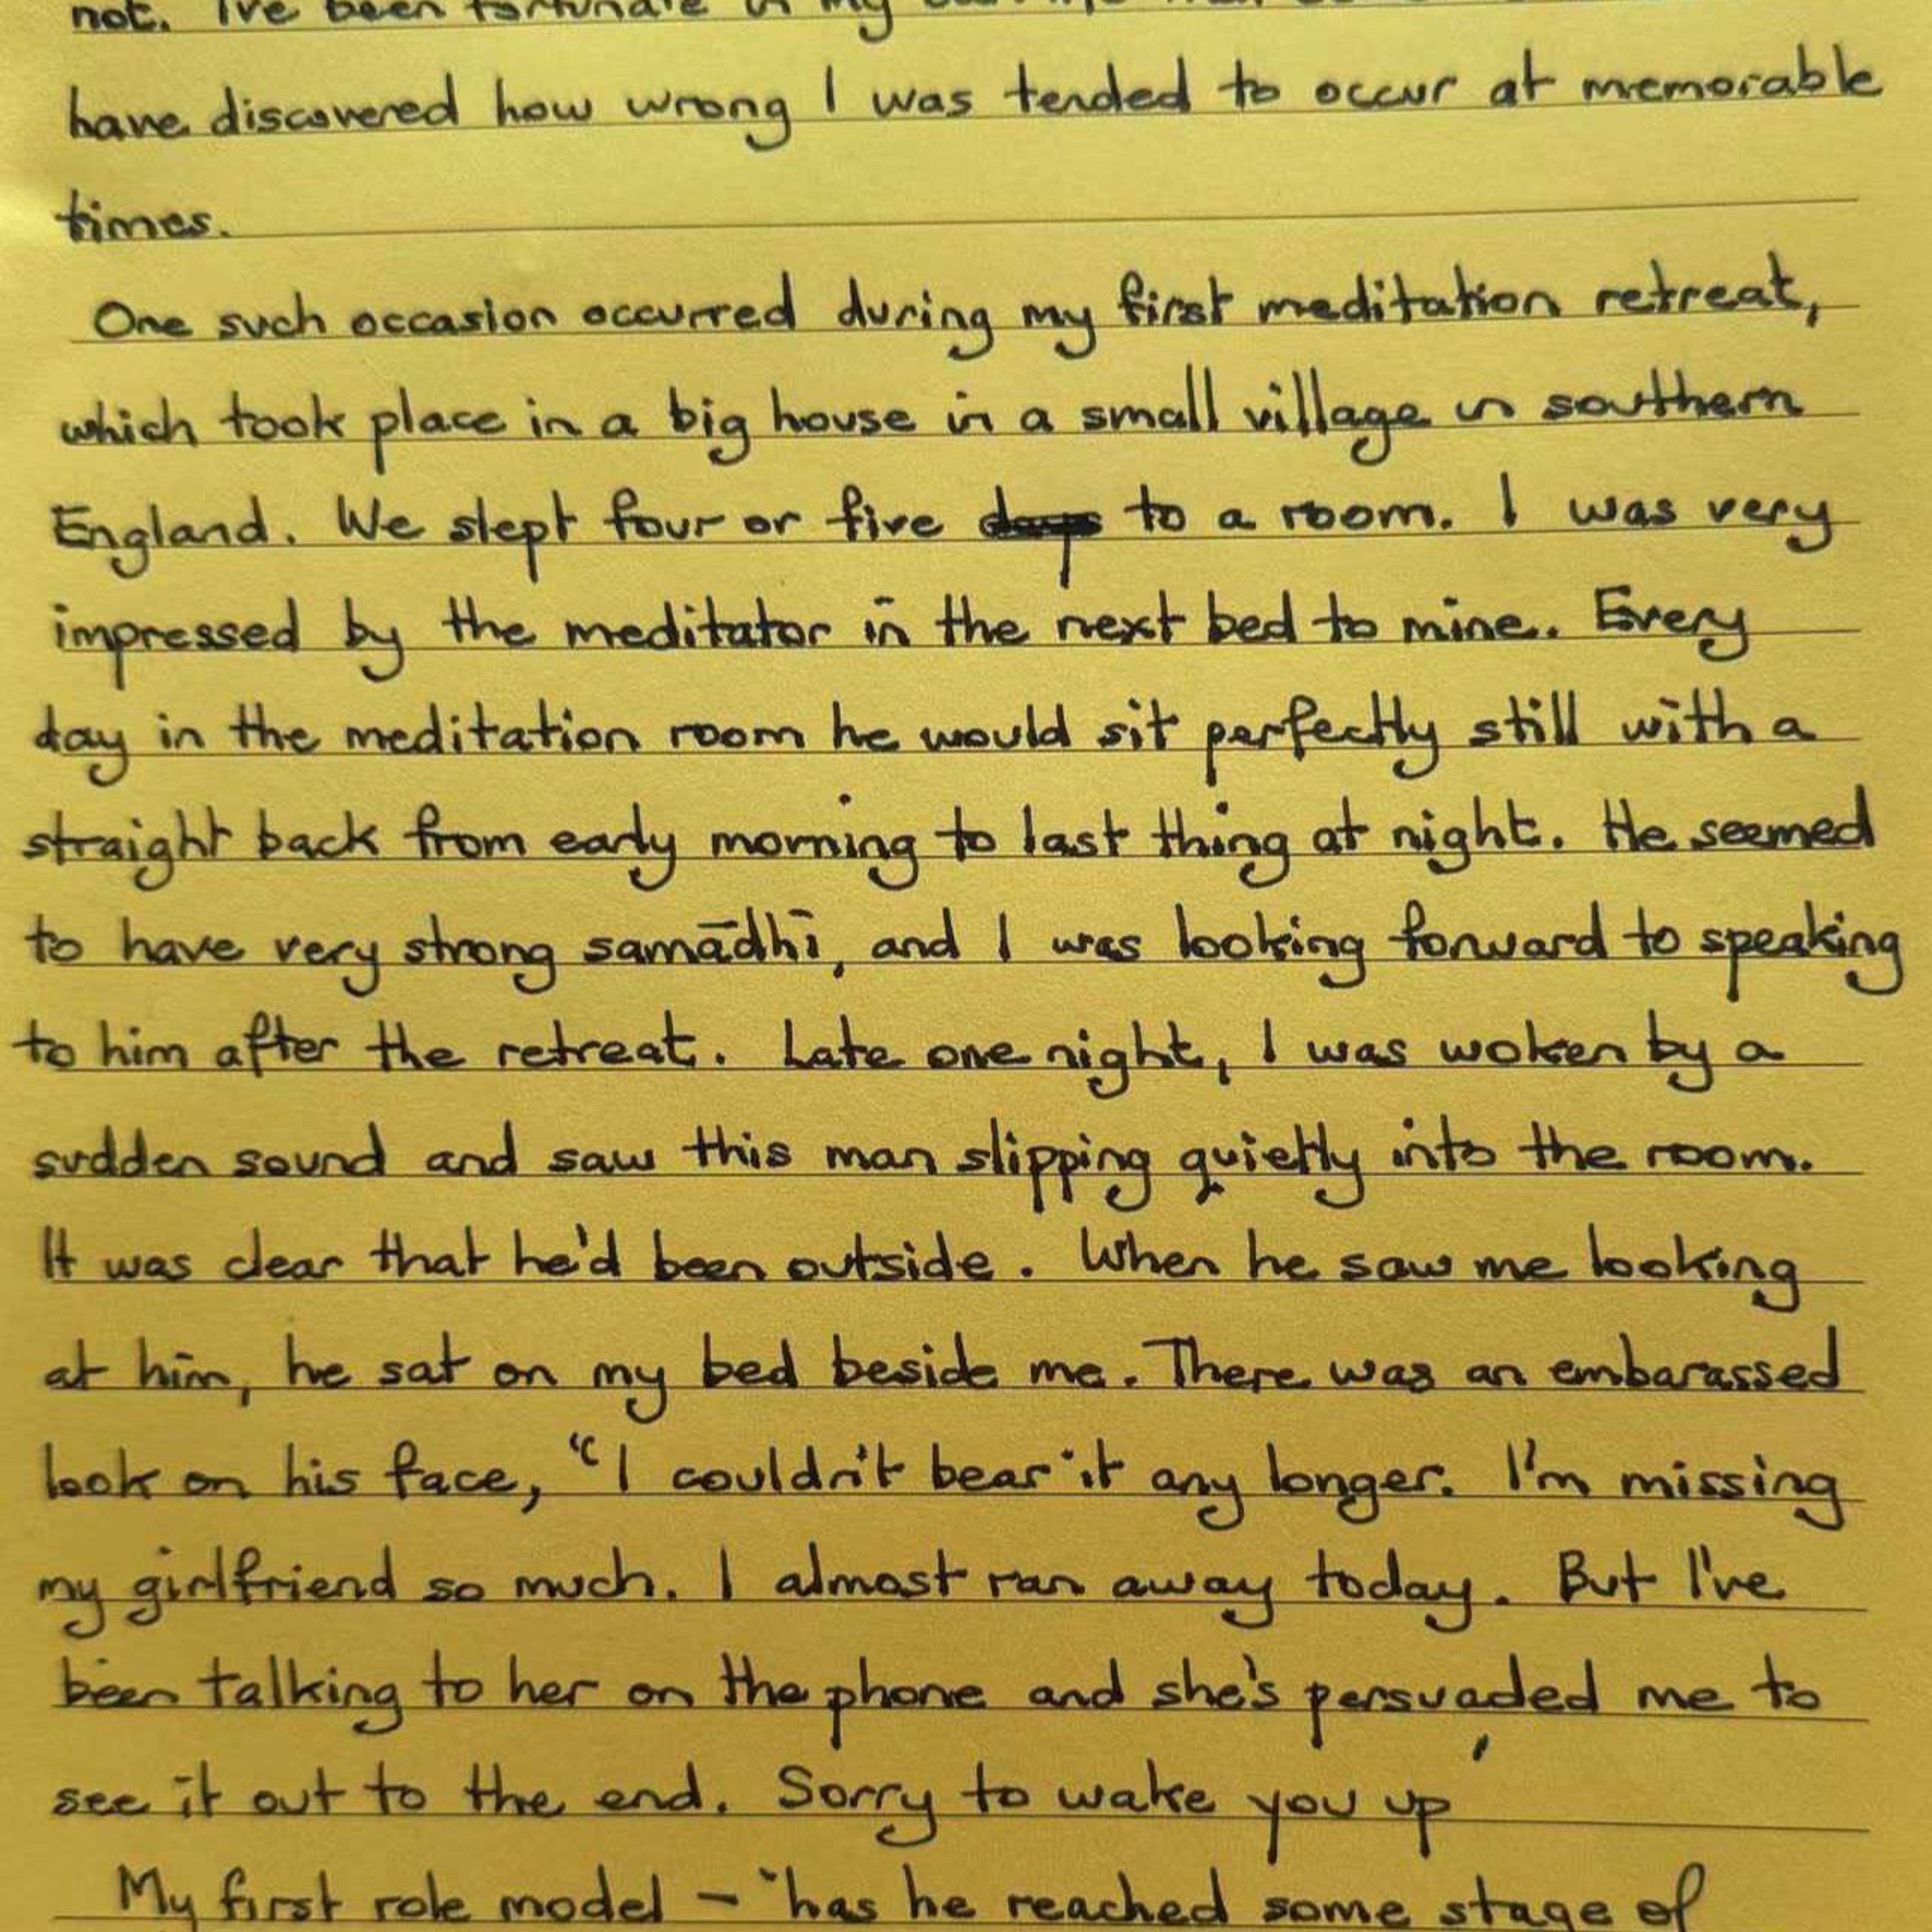 not. I've been fortunate in my
have discovered how wrong I was tended to occur at memorable
times.
One such occasion occurred during my first meditation retreat,
which took place in a big house in a small village in southern
England. We slept four or five to a room. I was very
impressed by the meditator in the next bed to mine. Every
day in the meditation room he would sit perfectly still with a
straight back from early morning to last thing at night. He seemed
to have very strong samādhi, and I was looking forward to speaking
to him after the retreat. Late one night, I was woken by a
sudden sound and saw this man slipping quietly into the room.
It was clear that he'd been outside. When he saw me looking
at him, he sat on my bed beside me. There was an embarassed
look on his face, "I couldn't bear it any longer. I'm missing
my girlfriend so much. I almost ran away today. But I've
been talking to her on the phone and she's persuaded me to
see it out to the end. Sorry to wake you up'
My first role model – 'has he reached some stage of